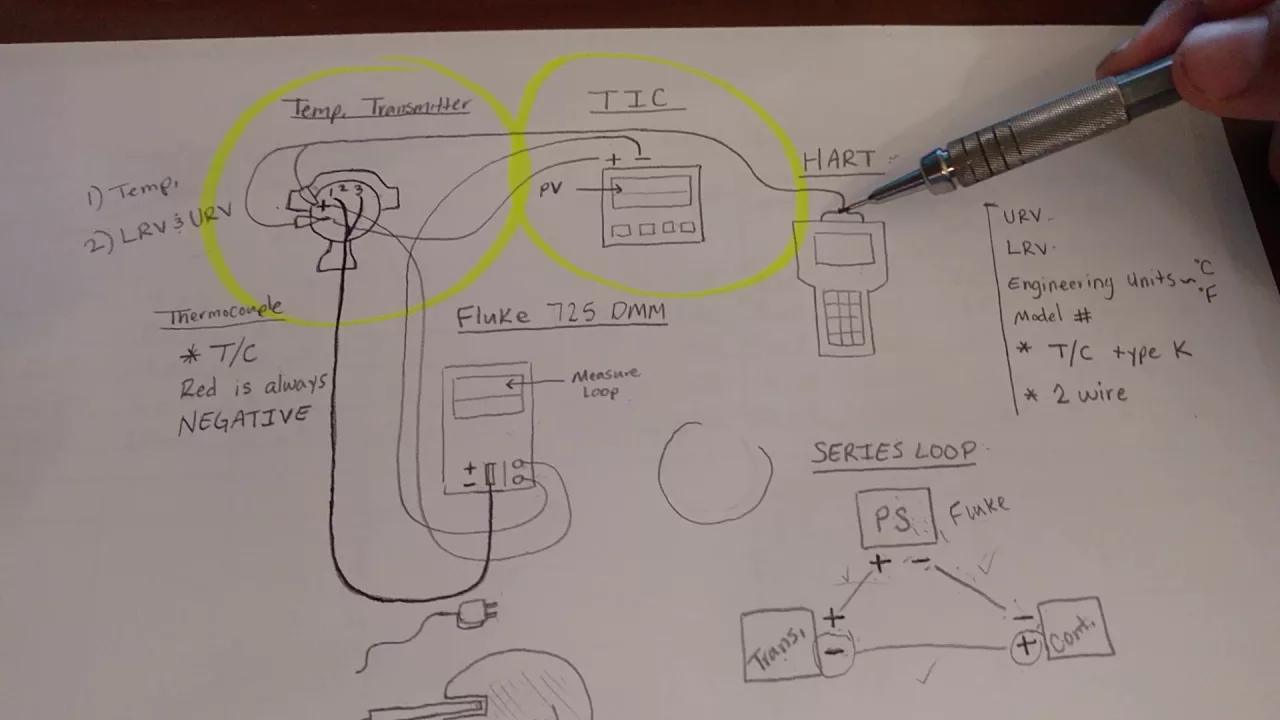 Temp. Transmitter
TIC
1) Temp.
2) LRV & URV
+ 1 2 3
-
+ -
PV
HART
URV.
LRV.
Engineering Units ~ °C
°F
Model #
* T/C type K
* 2 wire
Thermocouple
* T/C
Red is always
NEGATIVE
Fluke 725 DMM
Measure
Loop
+
-
SERIES LOOP
PS
Fluke
+ -
Trans.
+
-
-
+
Cont.